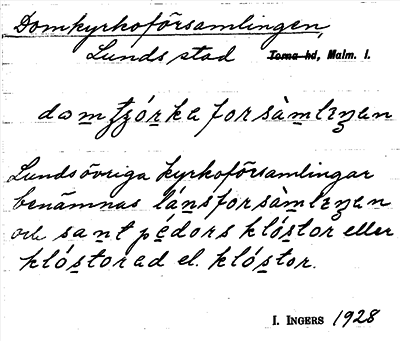 Domkyrkoförsamlingen,
Lunds stad Torna hd, Malm. l.
domtjórka forsàmlıŋan
Lunds övriga kyrkoförsamlingar
benämnas lánsforsàmlıŋan
och sant pédors klóstor eller
klóstorad el. klóstor.
I. INGERS 1928